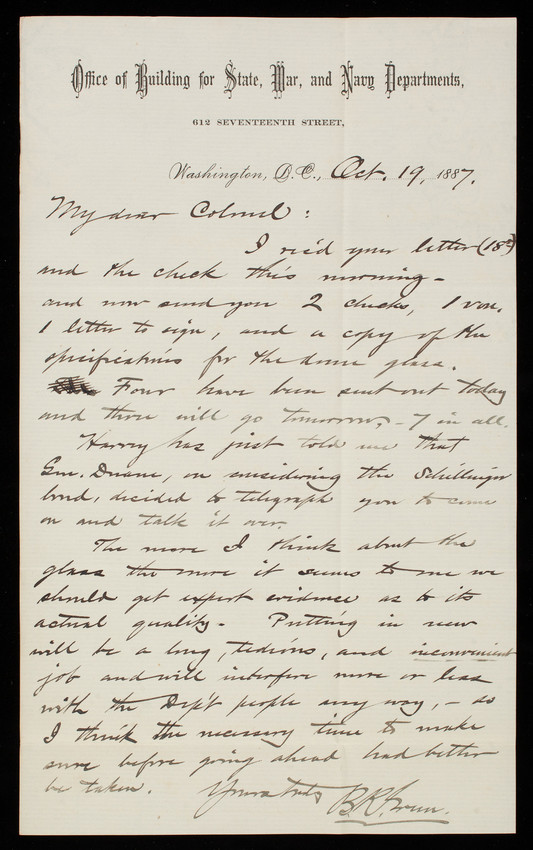 Office of Building for State, War, and Navy Departments,
612 SEVENTEENTH STREET,
Washington, D.C., Oct. 19, 1887.
My dear Colonel:
I rec'd your letter (18th)
and the check this morning -
and now send you 2 checks, 1 vou.
1 letter to sign, and a copy of the
specifications for the dome glass.
Four have been sent out today
and three will go tomorrow, - 7 in all.
Harvey has just told me that
Gen. Duane, on considering the Schillinger
bond, decided to telegraph you to come
on and talk it over.
The more I think about the
glass the more it seems to me we
should get expert evidence as to its
actual quality - Putting in new
will be a long, tedious, and inconvenient
job and will interfere more or less
with the Dep't people any way, - so
I think the necessary time to make
sure before going ahead had better
be taken. Yours truly
B.R. Green.